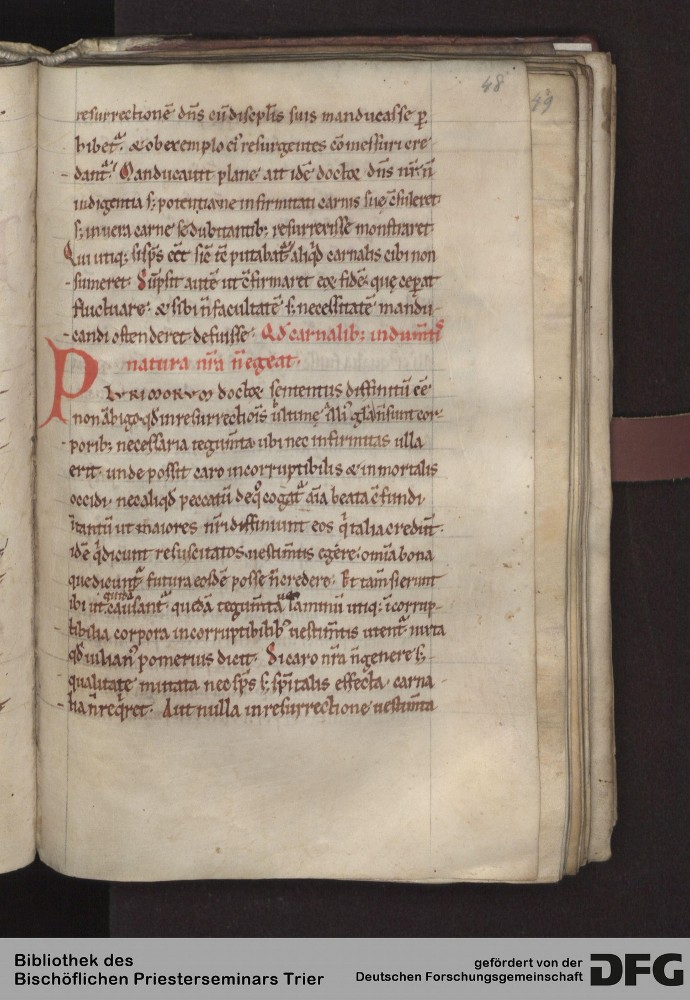 48
49
resurrectionē dn̄s cū discipl̄is suis manducasse ꝑ
hibet᷑. & ob exemplo ei᷒ resurgentes cōmessuri cre
dant᷑. Manducauit plane ait idē doctor dn̄s nr̄. n̄
indigentia s; potentia. ne infirmitati carnis sue c̄suleret.
s; in uera carne se dubitantib; resurrexisse monstraret.
Qui utiq; si sp̄s eēt sic̄ tē putabat᷑ aliqd̓ carnalis cibi non
sumeret. Sūpsit autē ut c̄firmaret eoꝝ fidē. que ceperat
fluctuare. & sibi n̄ facultatē s; necessitatē mandu
candi ostenderet defuisse. Qd̓ carnalib; indum̄tis
natura nr̄a n̄ egeat.
PLURIMORUM doctoꝝ sententiis diffinitū eē
non ābigo. qd̓ in resurrectiōis
porib; necessaria tegum̄ta. ubi nec infirmitas ulla
erit. unde possit caro incorruptibilis & inmortalis
occidi. nec aliqd̓ peccatū de qͦ cogat᷑ aīa beata c̄fundi.
n̄tantū ut maiores nr̄i diffiniunt eos qͥ talia credūt.
idē qͥ dicunt resuscitatos uestim̄tis egere. omīa bona
que dicunt᷑ futura eosdē posse n̄ credere. Et tam̄ si erunt
ibi ut quidā causant᷑ quedā tegum̄ta utiq; icorrup
tibilia corpora incorruptibilib᷒ uestim̄tis utent᷑. iuxta
qd̓ iulian᷒ pomerius dicit. Si caro nr̄a n̄ genere s;
qualitate mutata nec sp̄s s; sp̄italis effecta. carna
lia n̄ reqͥret. Aut nulla in resurrectione uestim̄ta
Bibliothek des
Bischöflichen Priesterseminars Trier
gefördert von der
Deutschen Forschungsgemeinschaft
DFG